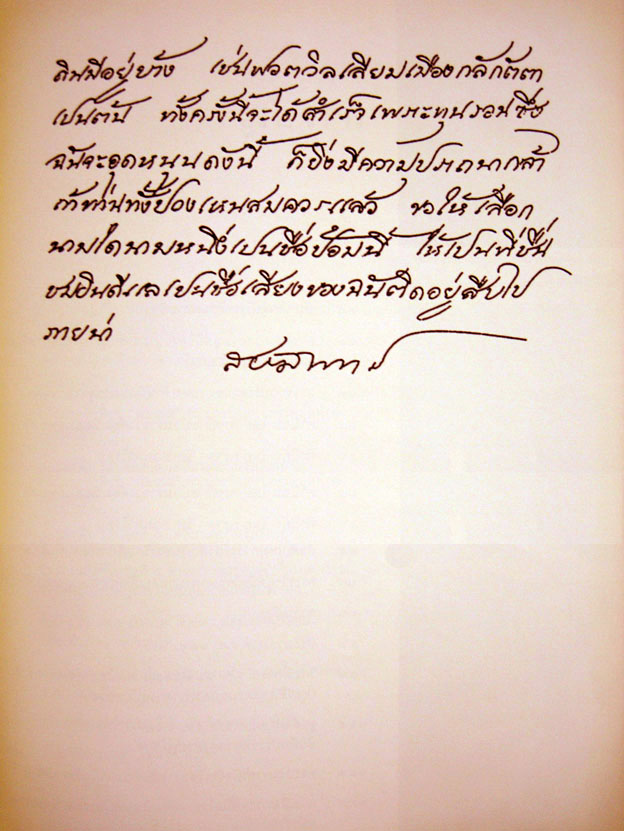 ดินมีอยู่บ้าง เช่นฟอตวิลเลียมเมืองกลักกัตตา
เปนต้น ทั้งครั้งนี้จะได้สำเร็จเพราะทุนรอนซึ่ง
ฉันจะอุดหนุนดังนี้ ก็ยิ่งมีความปรารถนากล้า
ถ้าท่านทั้งปวงเหนสมควรแล้ว ขอให้เลือก
นามใดนามหนึ่งเปนชื่อป้อมนี้ ให้เปนที่ชื่น
ชมยินดีแลเปนชื่อเสียงของฉันติดอยู่สืบไป
ภายน่า